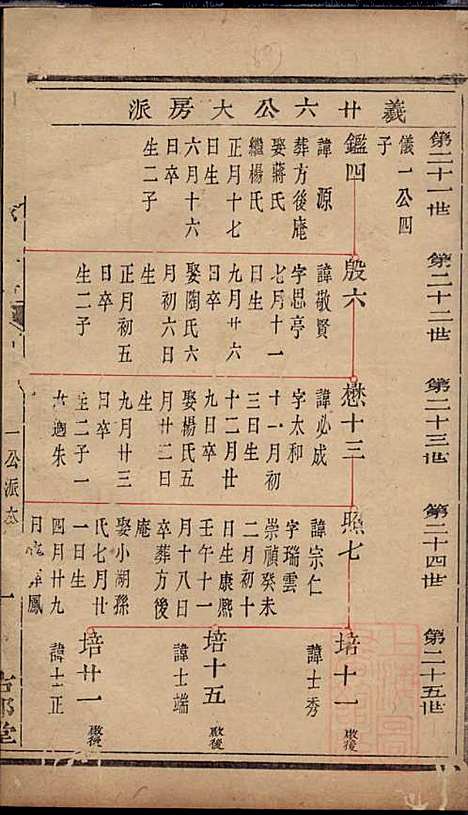 義廿六公大房派
第二十一世
儀一公四
子
鑑四
諱源
葬方後庵
娶蔣氏
繼楊氏
正月十七
日生
六月十六
日卒
生二子
第二十二世
殷六
諱敬賢
字思亭
七月十一
日生
九月廿六
日卒
娶陶氏六
月初六日
生
正月初五
日卒
生二子
第二十三世
懋十三
諱必成
字太和
十一月初
三日生
十二月廿
九日卒
娶楊氏五
月廿二日
生
九月廿三
日卒
生二子一
女適朱
第二十四世
照七
諱宗仁
字瑞雲
崇禎癸未
二月初十
日生康熙
壬午十一
月十八日
卒葬方後
庵
娶小湖孫
氏七月廿
一日生
四月廿九
第二十五世
培十一 啟後
諱士秀
培十五 啟後
諱士端
培廿一 啟後
諱士正
一公派
一